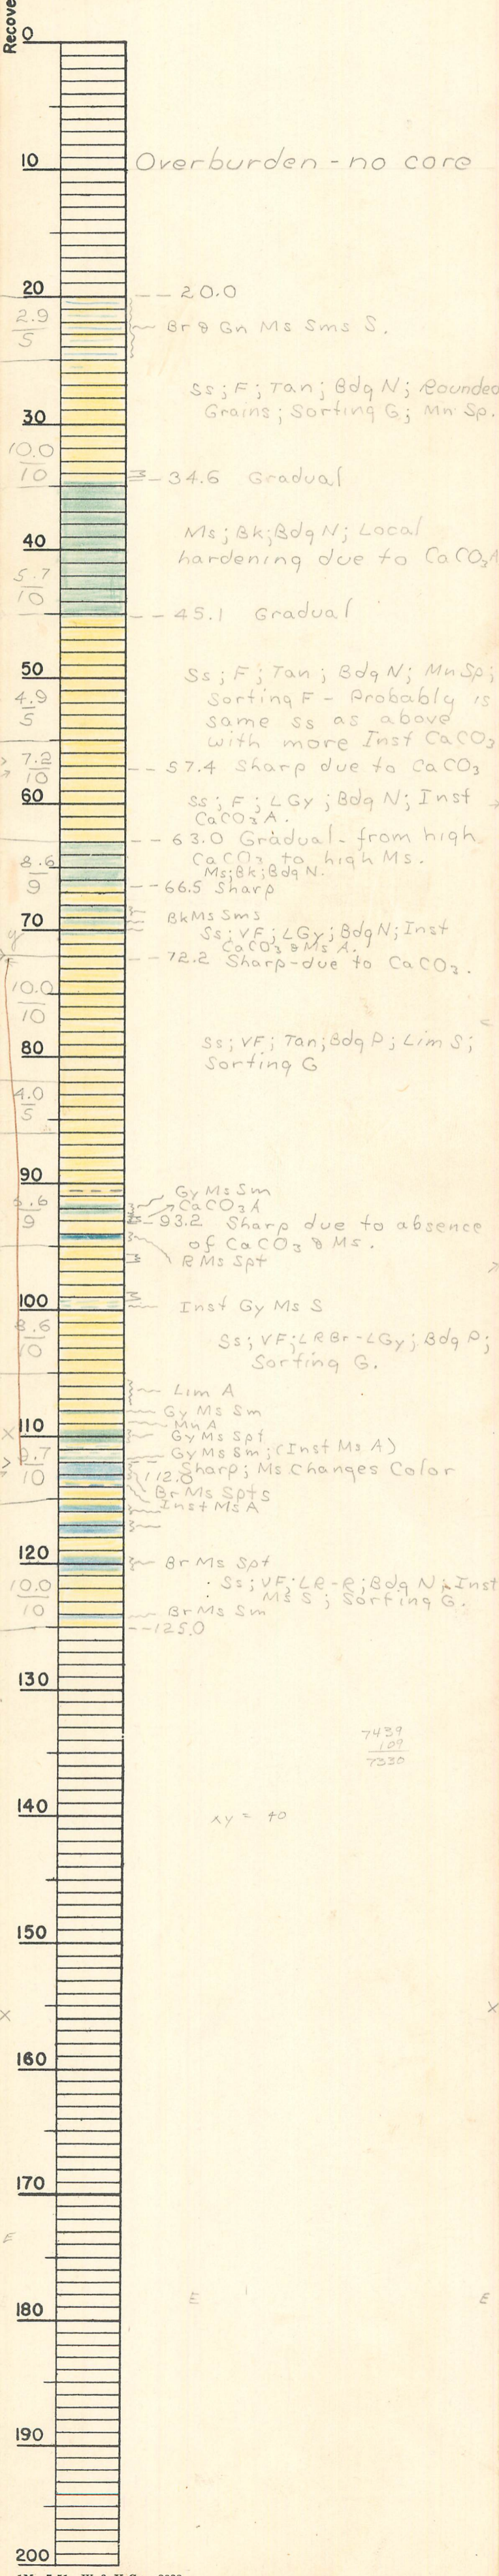 Recove
0
10
Overburden - no core
20
-- 20.0
2.9
5
Br & Gn Ms Sms S.
Ss; F; Tan; Bdg N; Rounded
Grains; Sorting G; Mn Sp.
30
10.0
10
-34.6 Gradual
Ms; Bk; Bdg N; Local
hardening due to CaCO3A
40
5.7
10
-- 45.1 Gradual
50
Ss; F; Tan; Bdg N; Mn Sp;
Sorting F - Probably is
same ss as above
with more Inst CaCO3
4.9
5
7.2
10
-- 57.4 Sharp due to CaCO3
60
Ss; F; LGy; Bdg N; Inst
CaCO3A.
-- 63.0 Gradual- from high
CaCO3 to high Ms.
Ms; Bk; Bdg N.
8.6
9
--66.5 Sharp
BkMs Sms
70
Ss; VF; LGy; Bdg N; Inst
CaCO3 & Ms A.
--72.2 Sharp-due to CaCO3.
y
10.0
10
80
Ss; VF; Tan; Bdg P; Lim S;
Sorting G
4.0
5
90
Gy Ms Sm
CaCO3A
.6
9
-93.2 Sharp due to absence
of CaCO3 & Ms.
R Ms Spt
100
Inst Gy Ms S
8.6
10
Ss; VF; LRBr-LGy; Bdg P;
Sorting G.
Lim A
Gy Ms Sm
Mn A
110
X
Gy Ms Spt
Gy Ms Sm; (Inst Ms A)
9.7
10
112.8 Sharp; Ms Changes Color
Br Ms Spts
Inst Ms A
120
Br Ms Spt
10.0
10
Ss; VF; LR-R; Bdg N; Inst
Ms S; Sorting G.
Br Ms Sm
--125.0
130
7439
109
7330
140
xy = 40
150
X
X
160
170
E
E
E
180
190
200